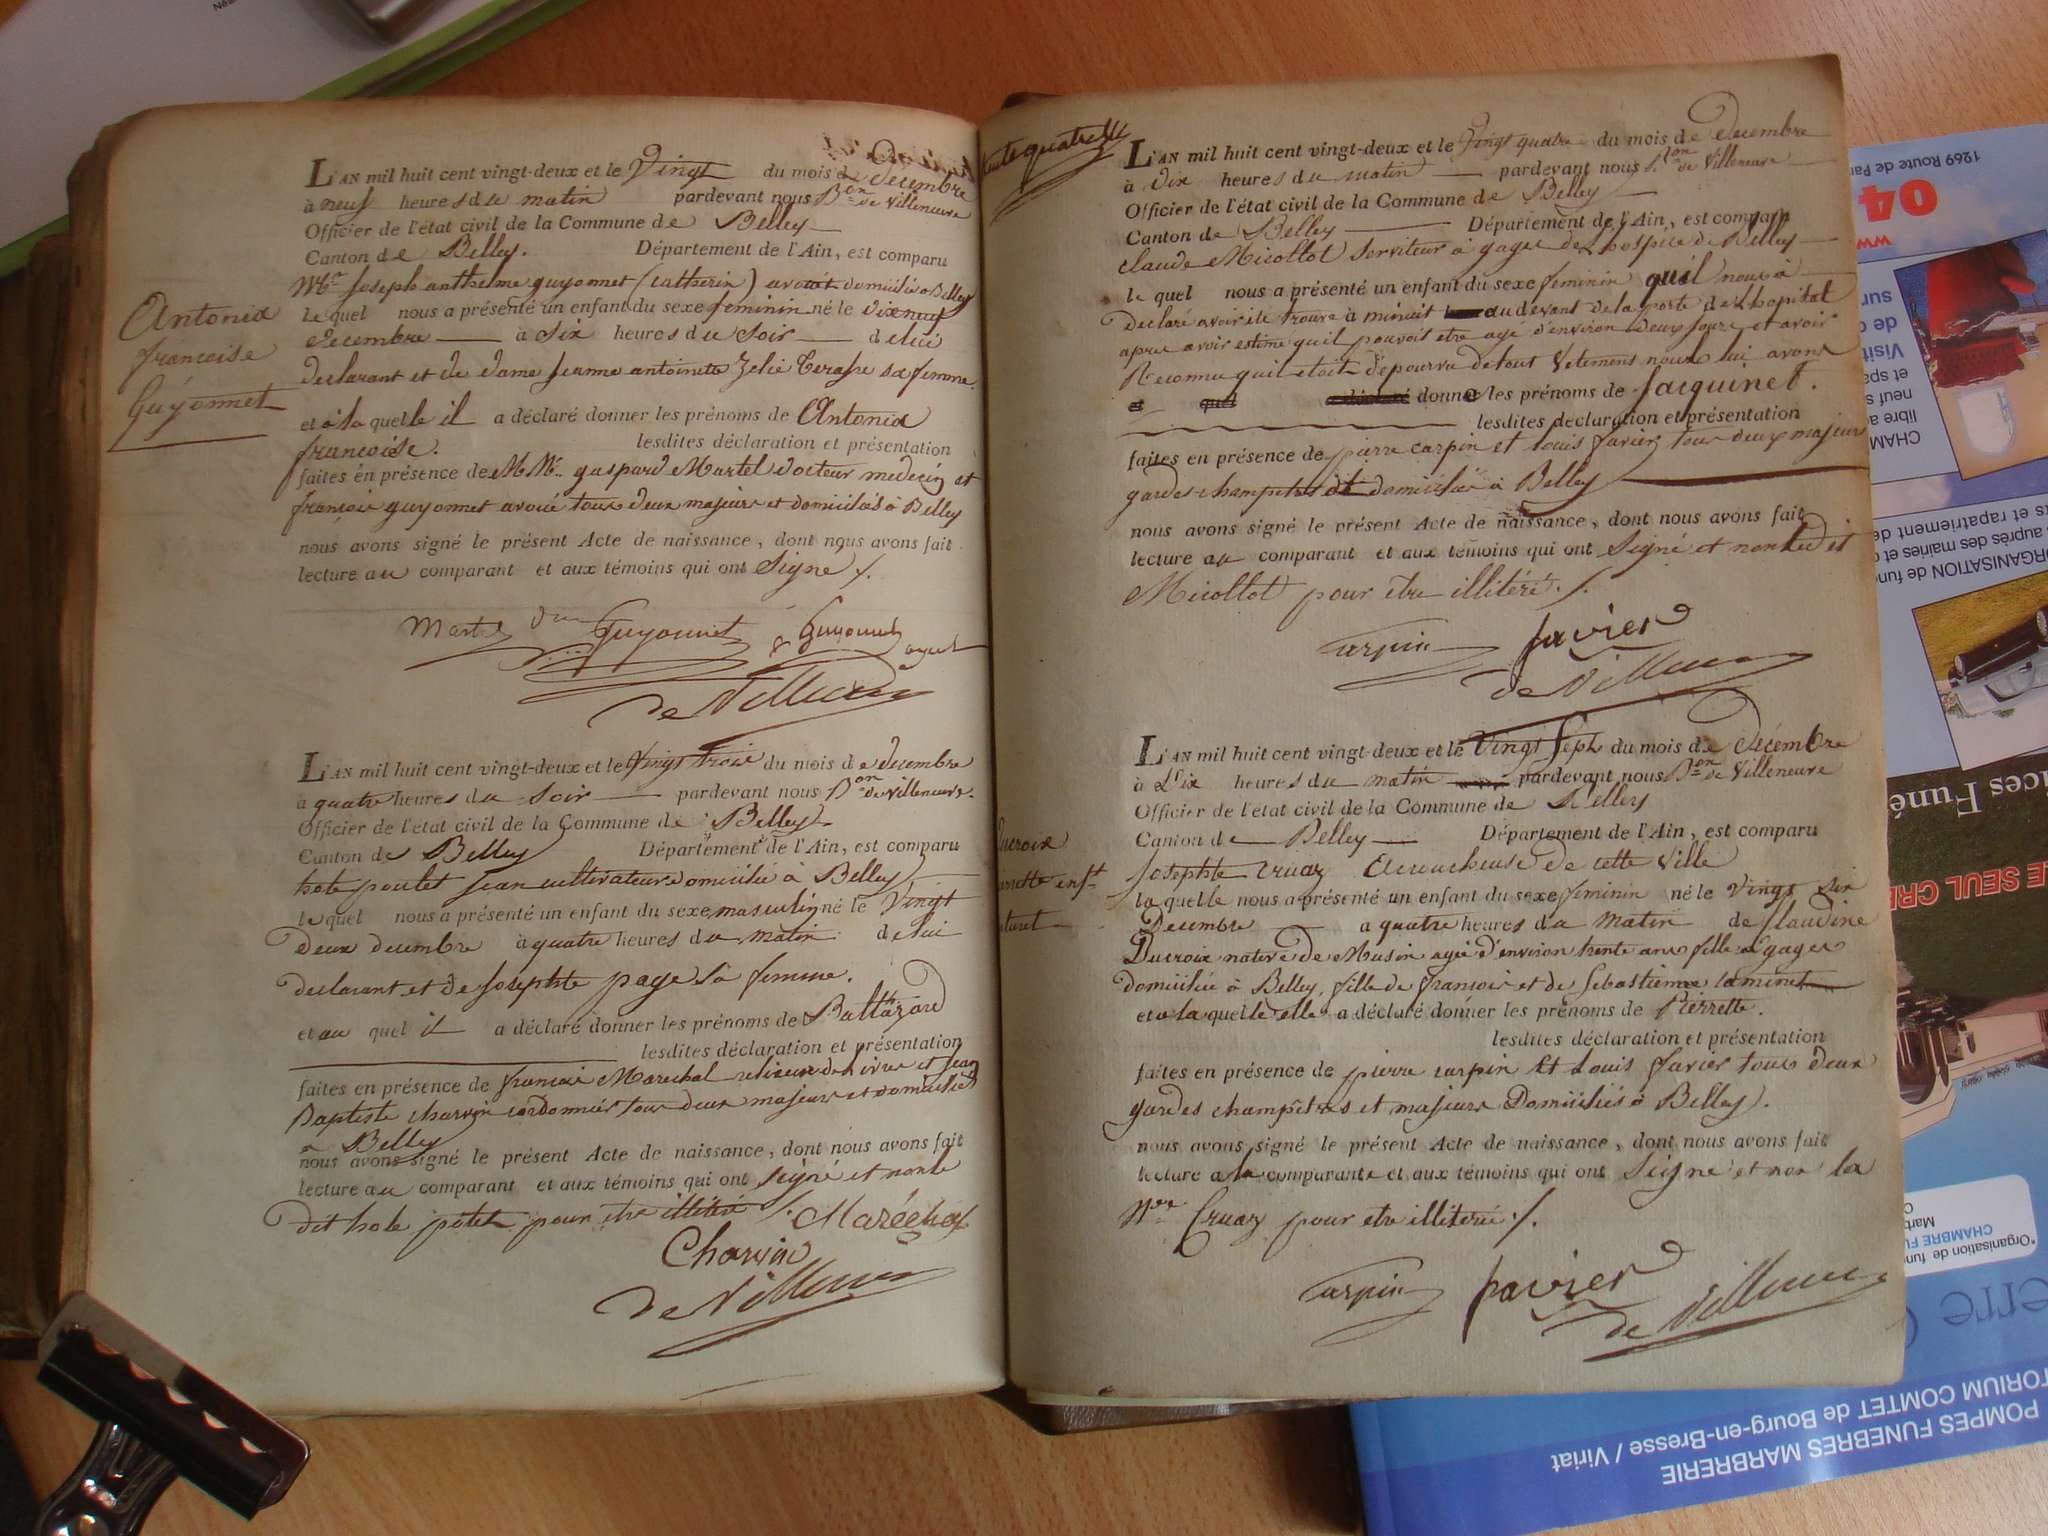 Antonia
francoise
Guÿonnet
L'AN mil huit cent vingt-deux et le Vingt du mois de decembre
à neuf heures du matin pardevant nous Bon de Villeneuve
Officier de l'état civil de la Commune de Belley
Canton de Belley. Département de l'Ain, est comparu
Mtre Joseph anthelme guyonnet (catherin) avoué domicilié à Belley
le quel nous a présenté un enfant du sexe feminin né le dix neuf
decembre à six heures du soir de lui
declarant et de dame Jeanne antoinette Zelie sa femme.
et à la quelle il a déclaré donner les prénoms de Antonia
francoise. lesdites déclaration et présentation
faites en présence de MM. gaspard Martel docteur medecin et
françois guyonnet avoué tous deux majeurs et domiciliés à Belley
nous avons signé le présent Acte de naissance, dont nous avons fait
lecture au comparant et aux témoins qui ont Signé /.
Martel dm Guyonnet Guyonnet
de Villeneuve
L'AN mil huit cent vingt-deux et le vingt trois du mois de decembre
à quatre heures du soir pardevant nous Bon de Villeneuve.
Officier de l'état civil de la Commune de Belley
Canton de Belley Département de l'Ain, est comparu
hote poulet jean cultivateur domicilié à Belley
le quel nous a présenté un enfant du sexe masculin né le Vingt
deux decembre à quatre heures du matin de lui
declarant et de Josephte page sa femme.
et au quel il a déclaré donner les prénoms de Baltazard
lesdites déclaration et présentation
faites en présence de francois Marechal relieur de livres et jean
Baptiste charvin cordonnier tous deux majeurs et domiciliés
à Belley
nous avons signé le présent Acte de naissance, dont nous avons fait
lecture au comparant et aux témoins qui ont signé et non le
dit hote pour être illitéré /. Maréchal
Charvin
de Villeneuve
L'AN mil huit cent vingt-deux et le Vingt quatre du mois de decembre
à dix heures du matin pardevant nous Bon de Villeneuve
Officier de l'état civil de la Commune de Belley
Canton de Belley Département de l'Ain, est comparu
claude Micollot serviteur à gage de l'hospice de Belley
le quel nous a présenté un enfant du sexe feminin qu'il nous à
declaré avoir été trouvé à minuit au devant de la porte de l'hopital
apres avoir estimé qu'il pouvoit etre agé d'environ deux jours et avoir
Reconnu qu'il etoit dépourvu de tout Vetemens nous lui avons
donné les prénoms de Jacquinet.
lesdites déclaration et présentation
faites en présence de pierre carpin et louis favier tous deux majeurs
gardes champetres et domiciliés à Belley
nous avons signé le présent Acte de naissance, dont nous avons fait
lecture au comparant et aux témoins qui ont signé et non led it
Micollot pour être illitéré. /.
Carpin favier
de Villeneuve
Ducroix
L'AN mil huit cent vingt-deux et le Vingt Sept du mois de decembre
à Dix heures du matin pardevant nous Bon de Villeneuve
Officier de l'état civil de la Commune de Belley
Canton de Belley Département de l'Ain, est comparu
Josephte cruaz Acoucheuse de cette Ville
la quelle nous a présenté un enfant du sexe feminin né le Vingt Six
Decembre a quatre heures du matin de Claudine
Ducroix native de Musin agée d'environ trente ans fille à gages
domiciliée à Belley, fille de francois et de Sebastienne
et à la quelle elle a déclaré donner les prénoms de Pierrette.
lesdites déclaration et présentation
faites en présence de pierre carpin et Louis favier tous deux
gardes champêtres et majeurs Domiciliés à Belley.
nous avons signé le présent Acte de naissance, dont nous avons fait
lecture à la comparante et aux témoins qui ont Signé et non la
Cruaz pour etre illiterée /.
Carpin favier
de Villeneuve
1269 Route de Par
04
CHAM
SEUL
POMPES FUNEBRES MARBRERIE
TORIUM COMTET de Bourg-en-Bresse / Viriat